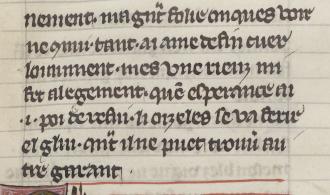 nement. ma gn̄t folie onques voir
ne qnui. tant. ai ame de fin cuer
loiaument. mes vne riens mi
fet alegement. quē esperance ai
.i. poi de resin. li oiseles se va ferir
el glui. qn̄t il ne puet trouuer au
tre garant